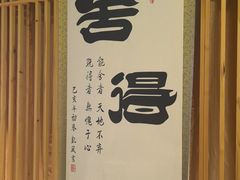 舍得
能舍者天地不弃
既得者無愧于心
己亥年初冬